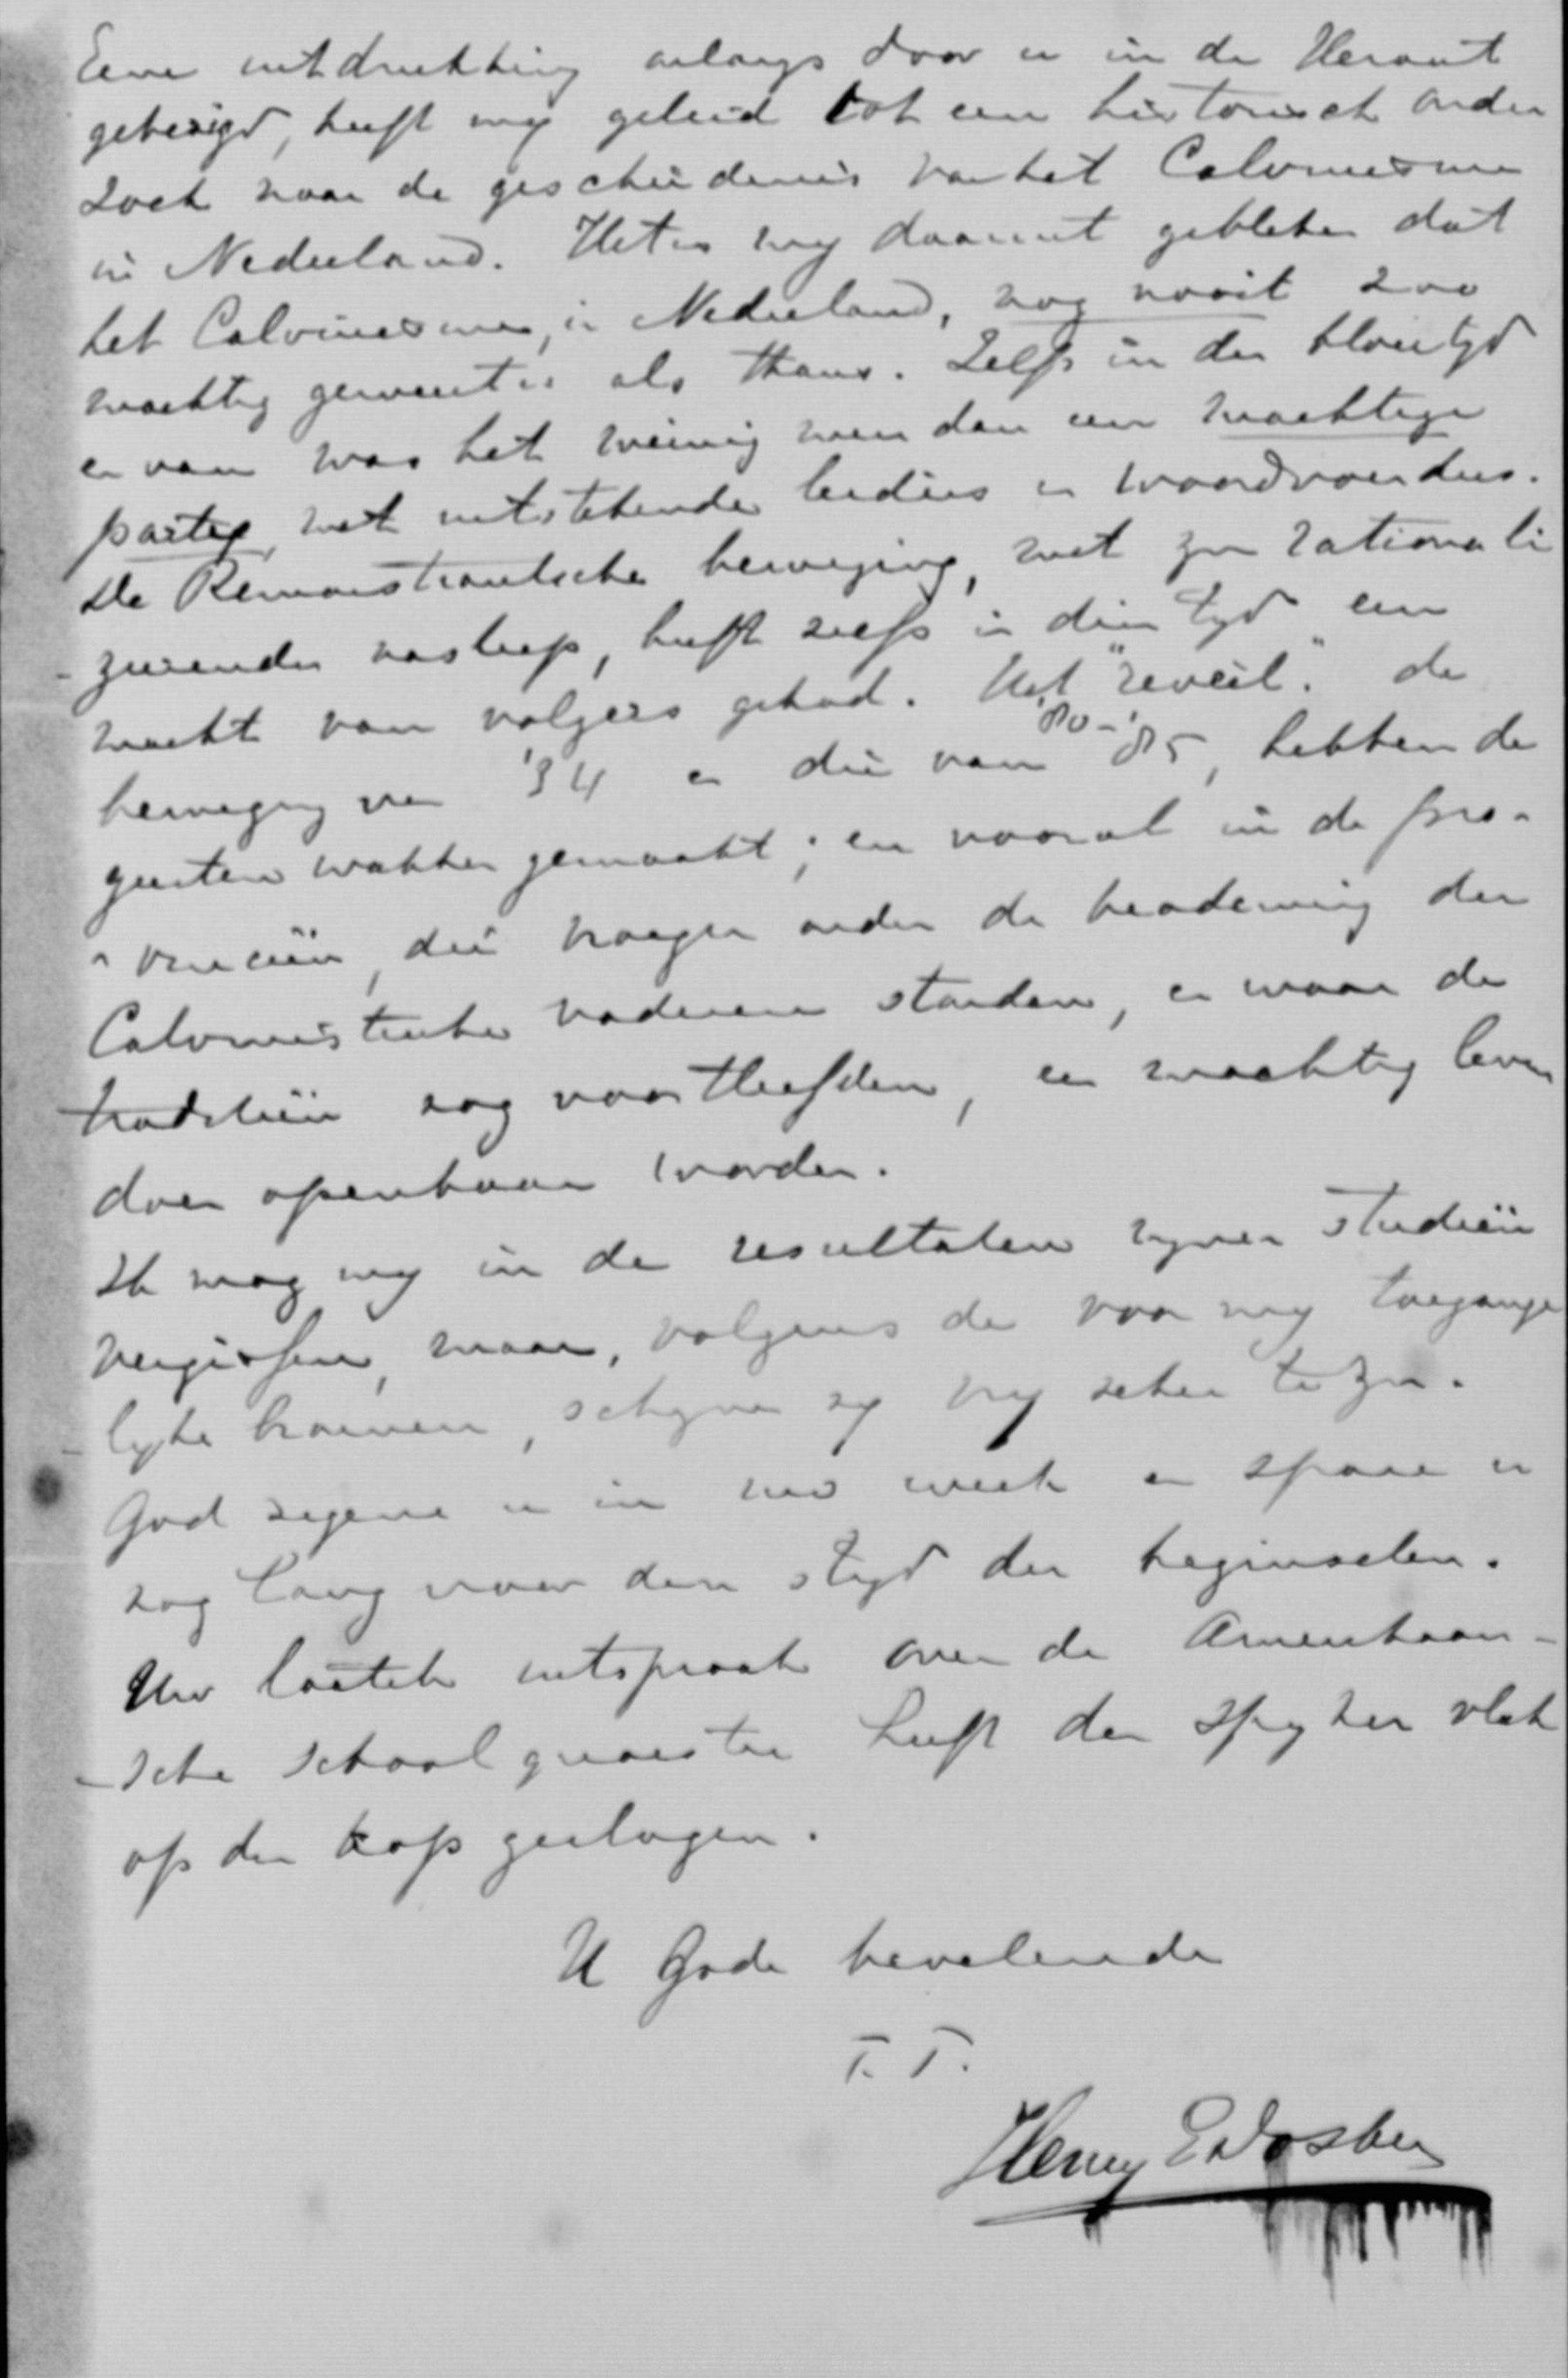 Eene uitdrukking onlangs door u in de Heraut
gebezigd, heeft my geleid tot een historisch onder
zoek naar de geschiedenis van het Calvinisme
in Nederland. Het is my daaruit gebleken dat
het Calvinisme, in Nederland, nog nooit zoo
machtig geweest is als thans. Zelfs in den bloeityd
er van was het weinig meer dan een machtige
party, met uitstekende leiders en woordvoerders.
De Remonstrantsche beweging, met zyn rationali
-zeerenden nasleep, heeft zelfs in dien tyd een
macht van volgers gehad. Het "reveil". de
beweging van '34 en die van '80-'85, hebben de
geesten wakker gemaakt; en vooral in de pro-
-vincien, die vroeger onder de beademing der
Calvinistische vaderen stonden, en waar de
tradition nog voortleefden, een machtig leven
doen openbaar worden.
Ik mag my in de resultaten myner studiën
vergissen, maar, volgens de voor my toegange
-lyke bronnen, schynen zy my zeker te zyn.
God zegene u in uw werk en spare u
nog lang voor den stryd der beginselen.
Uw laatste uitspraak over de Amerikaan-
-sche schoolquaestie heeft den spyker vlak
op den kop geslagen.
U Gode bevelende
T. T.
Henry E Dosker